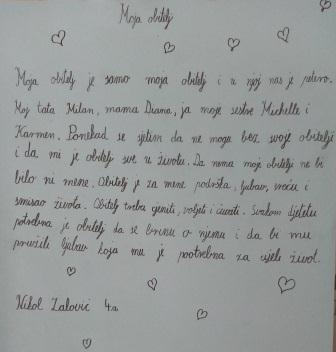 Moja obitelj
Moja obitelj je samo moja obitelj i u njoj nas je petero.
Moj tata Milan, mama Diana, ja moje sestre Michelle i
Karmen. Ponekad se sjetim da ne mogu bez svoje obitelji
i da mi je obitelj sve u životu. Da nema moje obitelji ne bi
bilo ni mene. Obitelj je za mene podrška, ljubav, sreća i
smisao života. Obitelj treba cijeniti, voljeti i čuvati. Svakom djetetu
potrebna je obitelj da se brinu o njemu i da bi mu
pružili ljubav koja mu je pootrebna za cijeli život.
Nikol Zalović 4.a